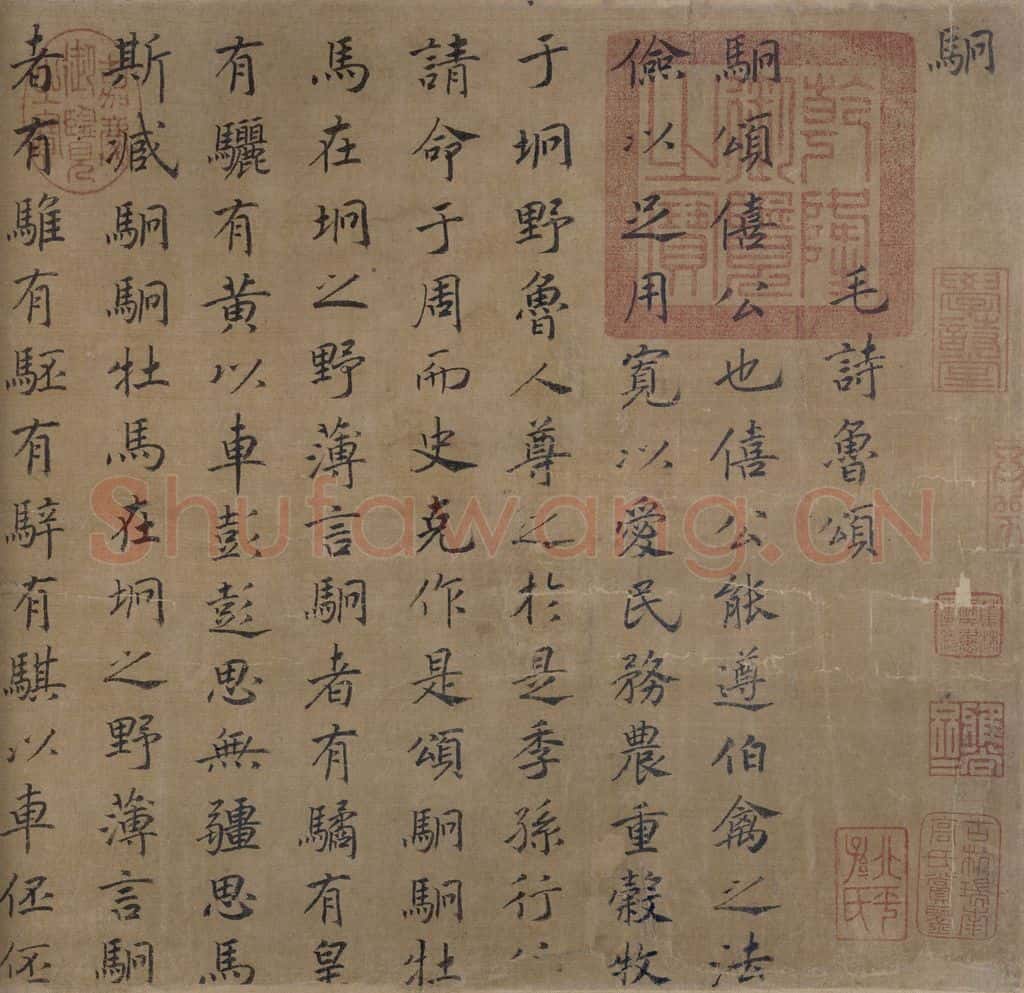 駉
毛詩魯頌
駉頌僖公也僖公能遵伯禽之法
儉以足用寬以愛民務農重穀牧
于坰野魯人尊之於是季孫行
請命于周而史克作是頌駉駉牡
馬在坰之野薄言駉者有驈有皇
有驪有黃以車彭彭思無疆思馬
斯臧駉駉牡馬在坰之野薄言駉
者有騅有駓有騂有騏以車伾伾
乾隆御覽之寶
嘉慶御覽之寶
Shufawang.CN